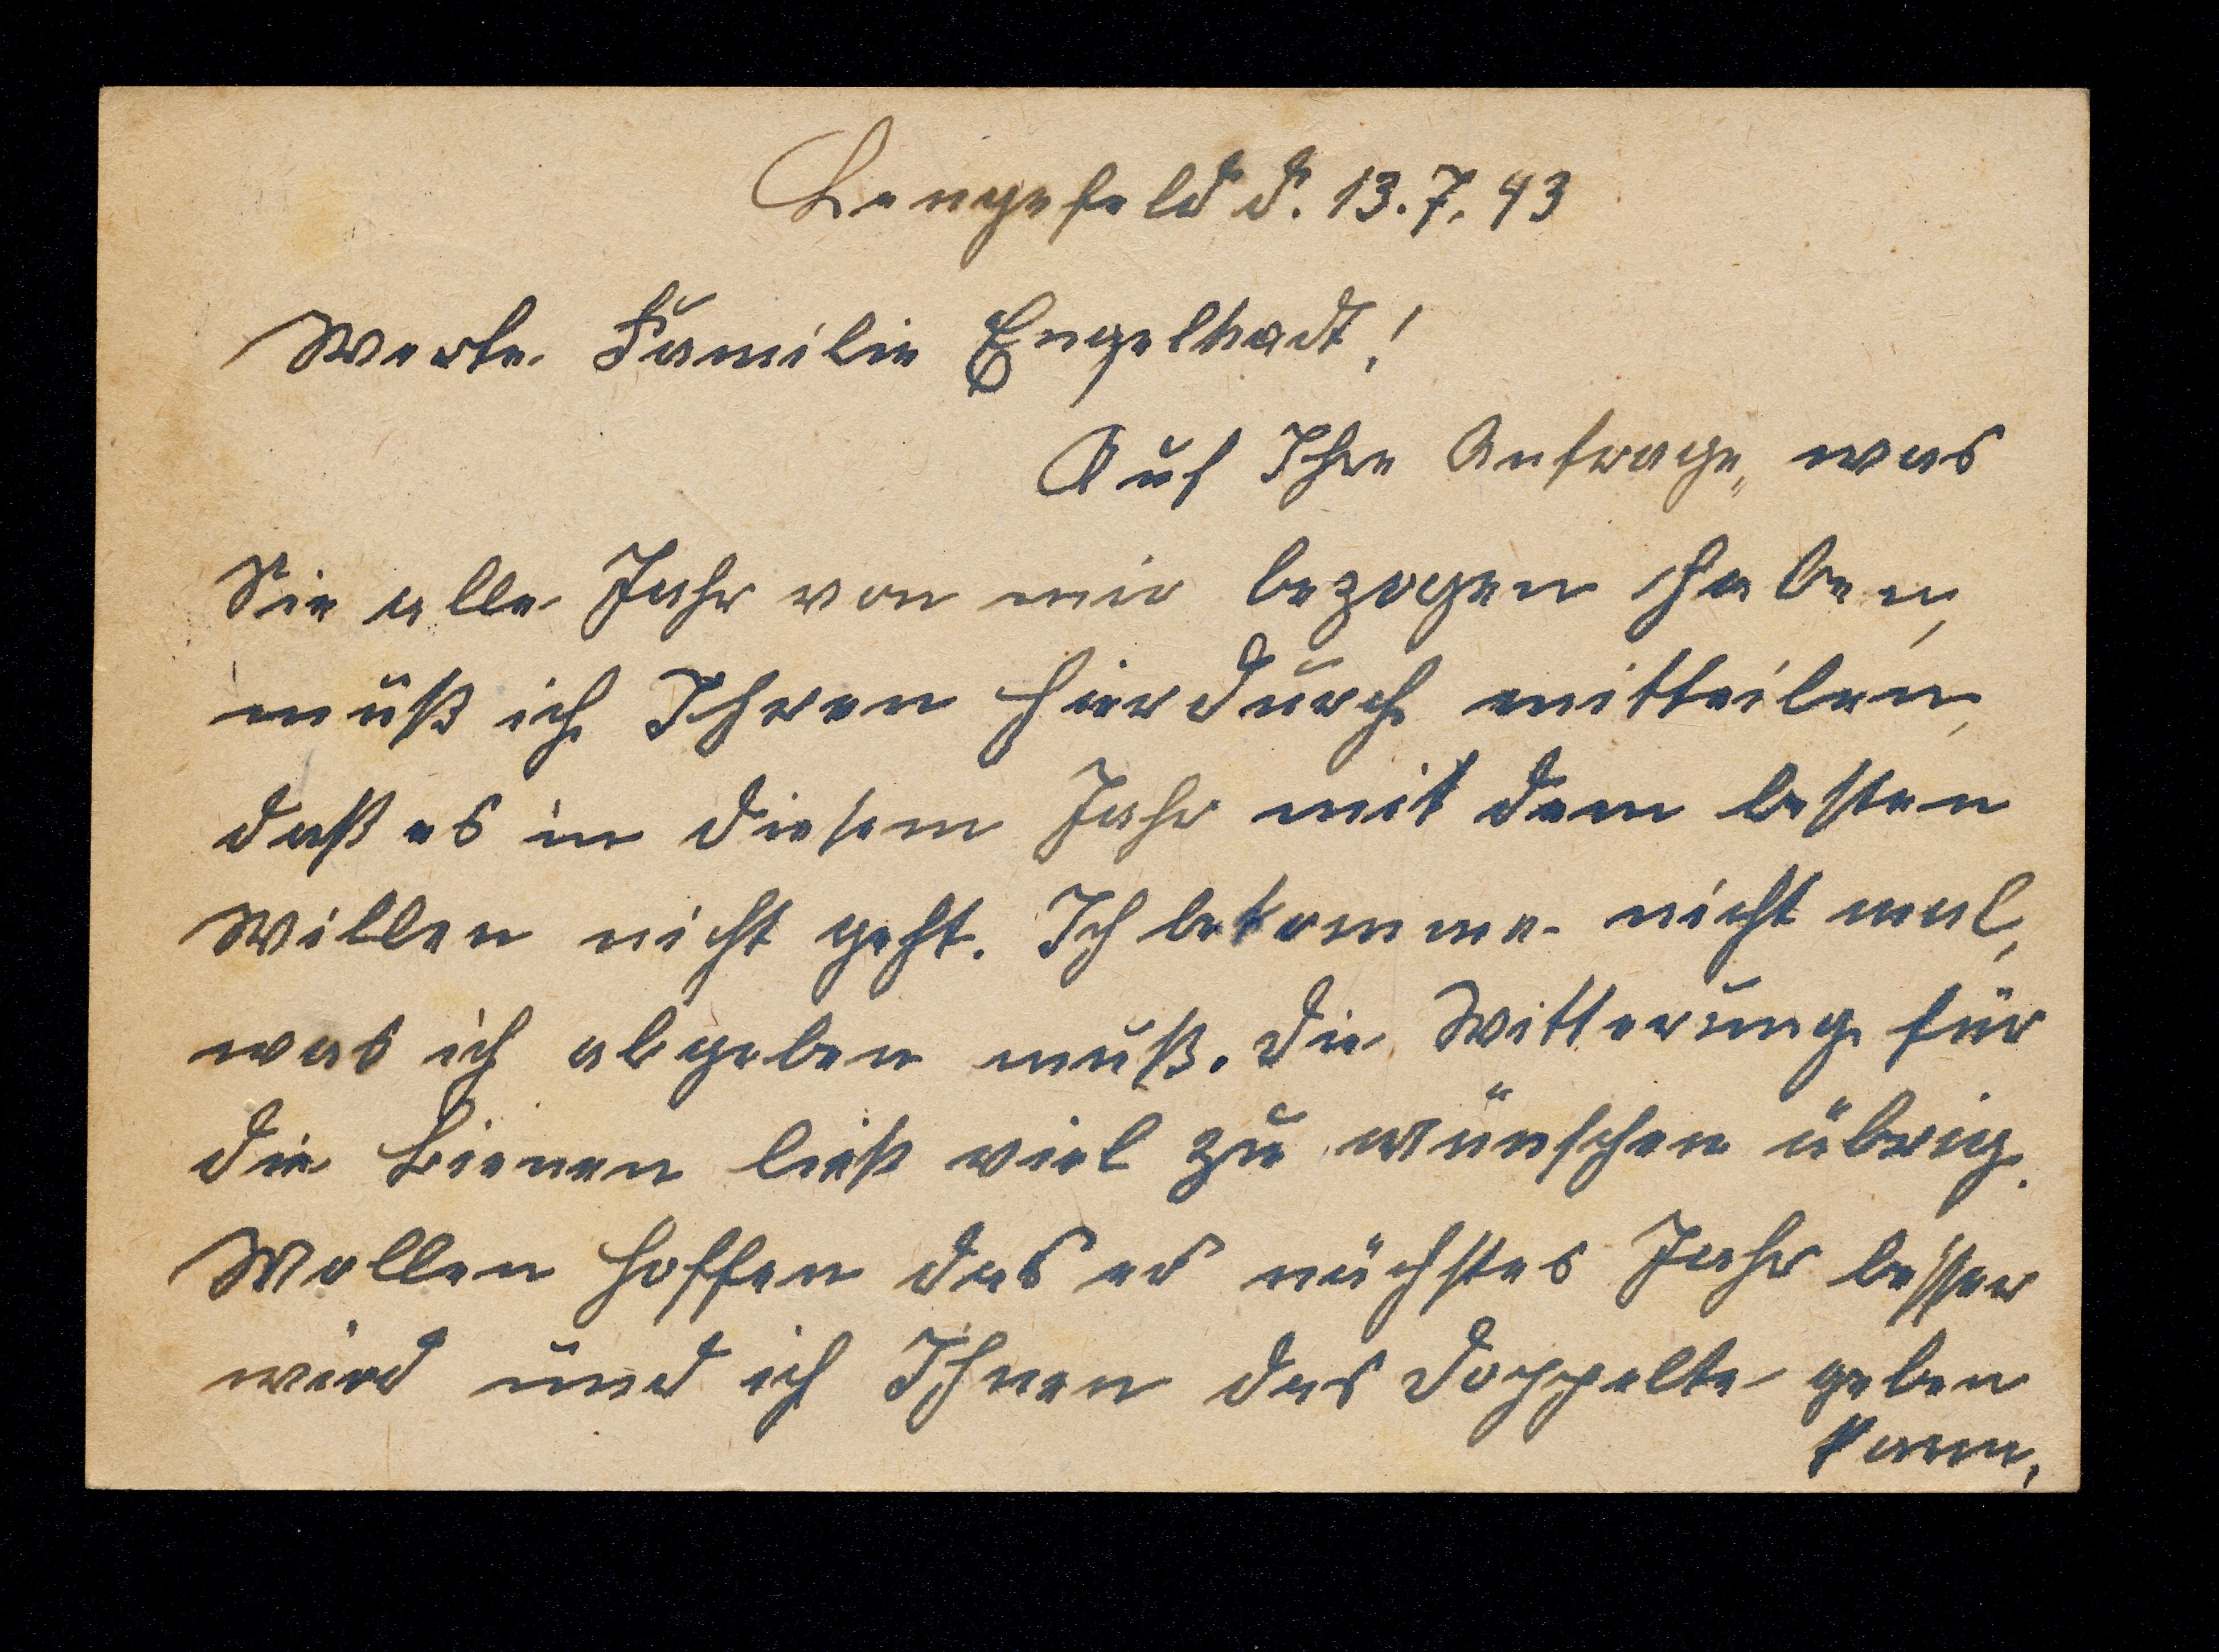 Lengefeld d. 13.7.43
Werte Familie Engelhadt!
Auf Ihre Anfrage, was
Sie alle Jahr von mir bezogen haben,
muß ich Ihren hierdurch mitteilen,
daß es in diesem Jahr mit dem besten
Willen nicht geht. Ich bekomme nicht mal,
was ich abgeben muß. Die Witterung für
die Bienen ließ viel zu wünschen übrig.
Wollen hoffen das es nächstes Jahr besser
wird und ich Ihnen das Doppelte geben
kann.